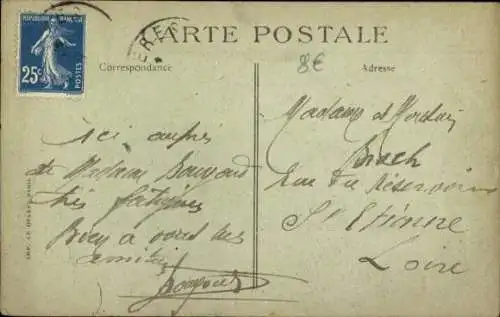 REPUBLIQUE FRANÇAISE
25c
POSTES
CARTE POSTALE
8€
Correspondance
Adresse
Ici auprès
de Madame
très fatiguée
Bien à vous mes
amitiés
Madame et Monsieur
Rue du Réservoir
St Etienne
Loire